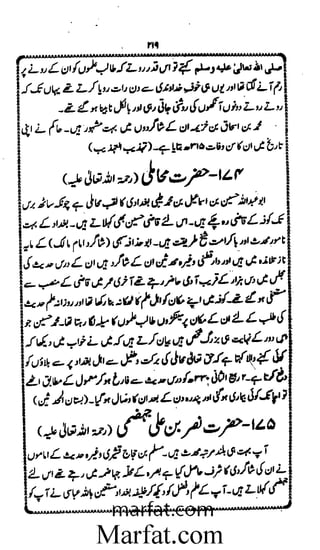 ۲۱۹
صلی اللہ تعالیٰ علیہ وسلم کہتے تو اس قدر روتے کہ طالب علموں کو ان کے رونے پر
رحم آنے لگتا تھا اور یوں ہی خوف خداوندی سے دن رات رویا کرتے تھے یہاں تک کہ
روتے روتے دونوں آنکھوں کی روشنی جاتی رہی اور بالکل نابینا ہو گئے۔
محمد بن اسحاق بن خزیمہ ان کے شاگردوں میں بہت مشہور ہیں۔ حاکم نے اپنی
تاریخ میں ان کا سن وفات ۳۱۵ھ بتایا ہے۔ (تہذیب التہذیب)
۱۷۴- حضرت محاملی (رحمۃ اللہ تعالیٰ علیہ)
ابو عبداللہ حسین بن اسماعیل بن محمد طیبی بغدادی کا لقب محاملی ہے چونکہ ساٹھ برس
تک کوفہ کے قاضی رہ چکے ہیں۔ اس لئے قاضی حسین بھی کہلاتے ہیں۔ بغداد کے بہت
نامور محدث اور باکرامت شیخ طریقت ہیں۔ ابو حذافہ سہمی (شاگرد امام مالک) کے مایہ
ناز تلامذہ میں ہیں اور دارقطنی وغیرہ محدثین ان کے شاگرد ہیں ان کے درس حدیث کی
مجلس میں دس ہزار کے قریب آدمی حاضر رہتے تھے آخری عمر میں قاضی کے منصب سے
مستعفی ہو گئے تھے۔ کوفہ میں اپنے مکان کو اہل علم کا ٹھکانہ بنا رکھا تھا اور روزانہ علم حدیث
کی طلب کے لئے ان کے مکان پر سینکڑوں طالب علموں کا میلہ لگا رہتا تھا۔ محمد حسین جو
اس دور کے نہایت ہی بزرگ شخص ہیں بیان کرتے ہیں کہ میں نے خواب میں دیکھا کہ
کوئی کہنے والا کہتا ہے کہ حق تعالیٰ محاملی کی برکت و طفیل سے اہل بغداد پر سے بلاؤں کو
دفع کرتا ہے۔ ۲ ربیع الثانی ۳۳۰ھ کو درس حدیث سے فارغ ہو کر معمول کے مطابق اٹھے
تو اچانک کوئی بیماری ہو گئی اور پندرہ دن کے بعد ان کا وصال ہو گیا۔ (بستان المحدثین)
۱۷۵- حضرت نصر بن علی جہضمی (رحمۃ اللہ تعالیٰ علیہ)
آپ بہت ہی بلند مرتبہ محدث ہیں۔ مسلم بن حجاج قشیری وغیرہ حدیث کے اماموں
نے ان کی شاگردی کا شرف حاصل کیا ہے بصرہ کے محلہ جہاضمہ میں رہتے تھے اس لئے
جہضمی کہلاتے ہیں۔ آپ کے علم و فضل کو دیکھ کر خلیفہ بغداد مستعین باللہ عباسی نے آپ کو
marfat.com
Marfat.com